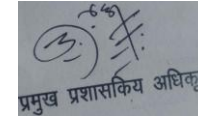 प्रमुख प्रशासकिय अधिकृ